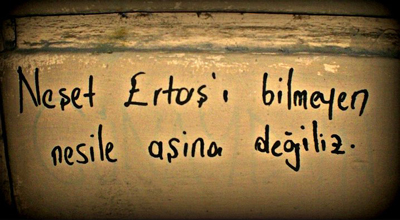 Neşet Ertaş'ı bilmeyen
nesile aşina değiliz.